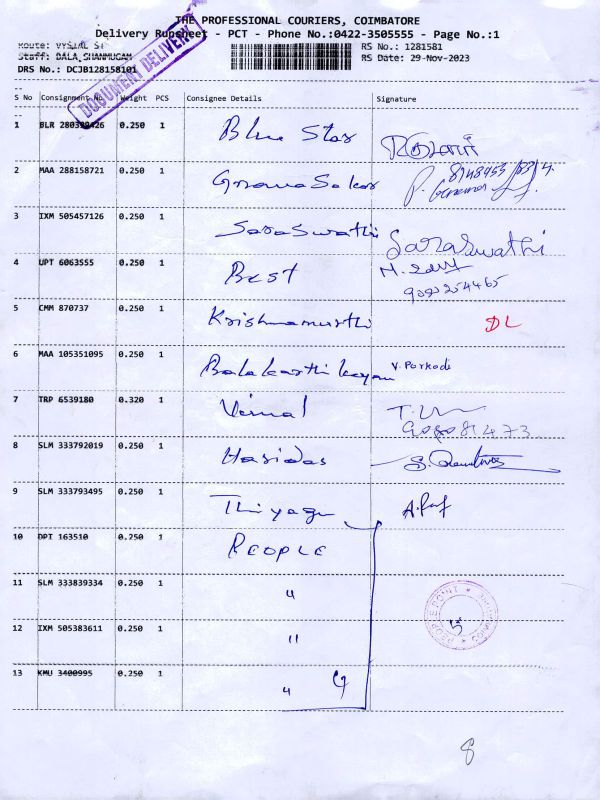 THE PROFESSIONAL COURIERS, COIMBATORE
Delivery Runsheet - PCT - Phone No.:0422-3505555 - Page No.:1
Route: VYSIAL ST RS No.: 1281581
Staff: BALA_SHANMUGAM RS Date: 29-Nov-2023
DRS No.: DCJB128158101
DOCUMENT DELIVERY
S No Consignment No Weight PCS Consignee Details Signature
1 BLR 0.250 1 Blue Star
2 MAA 288158721 0.250 1 Gnana Sekar
3 IXM 505457126 0.250 1 Saraswathi Saraswathi
4 UPT 6063555 0.250 1 Best
5 CMM 870737 0.250 1 Krishnamurthi DL
6 MAA 105351095 0.250 1 Balakarthikeyan V. Porkodi
7 TRP 6539180 0.320 1 Vimal
8 SLM 333792019 0.250 1 Haridas
9 SLM 333793495 0.250 1 Thiyagu
10 DPT 163510 0.250 1 PEOPLE
11 SLM 333839334 0.250 1 "
12 IXM 505383611 0.250 1 "
13 KMU 3400995 0.250 1 " 4
PEOPLE POINT
8